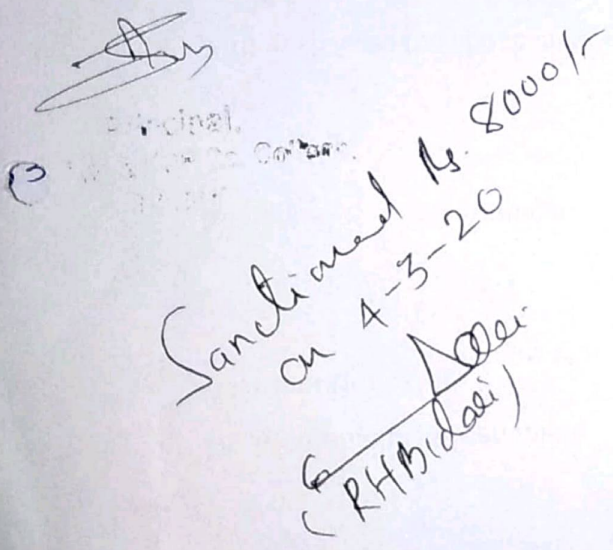 Principal,
Sanctioned Rs. 8000/-
on 4-3-20
(RHBidari)